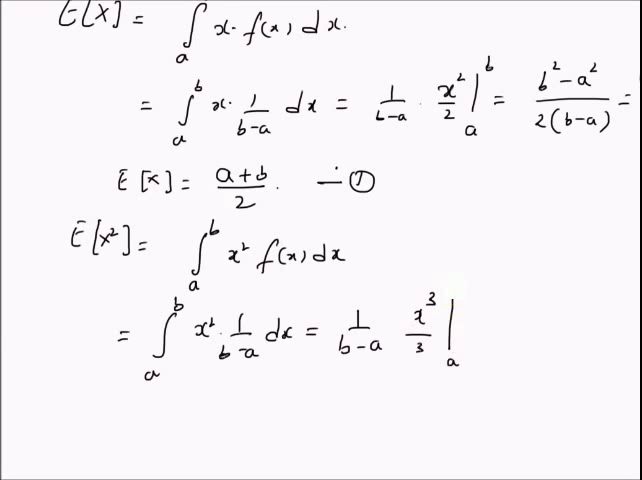 E[X] = ∫ₐ x · f(x) dx.
= ∫ₐᵇ x · 1/(b-a) dx = 1/(b-a) · x²/2 |ₐᵇ = (b² - a²)/(2(b-a)) =
E[X] = (a+b)/2. — ①
E[X²] = ∫ₐᵇ x² f(x) dx
= ∫ₐᵇ x² · 1/(b-a) dx = 1/(b-a) x³/3 |ₐ